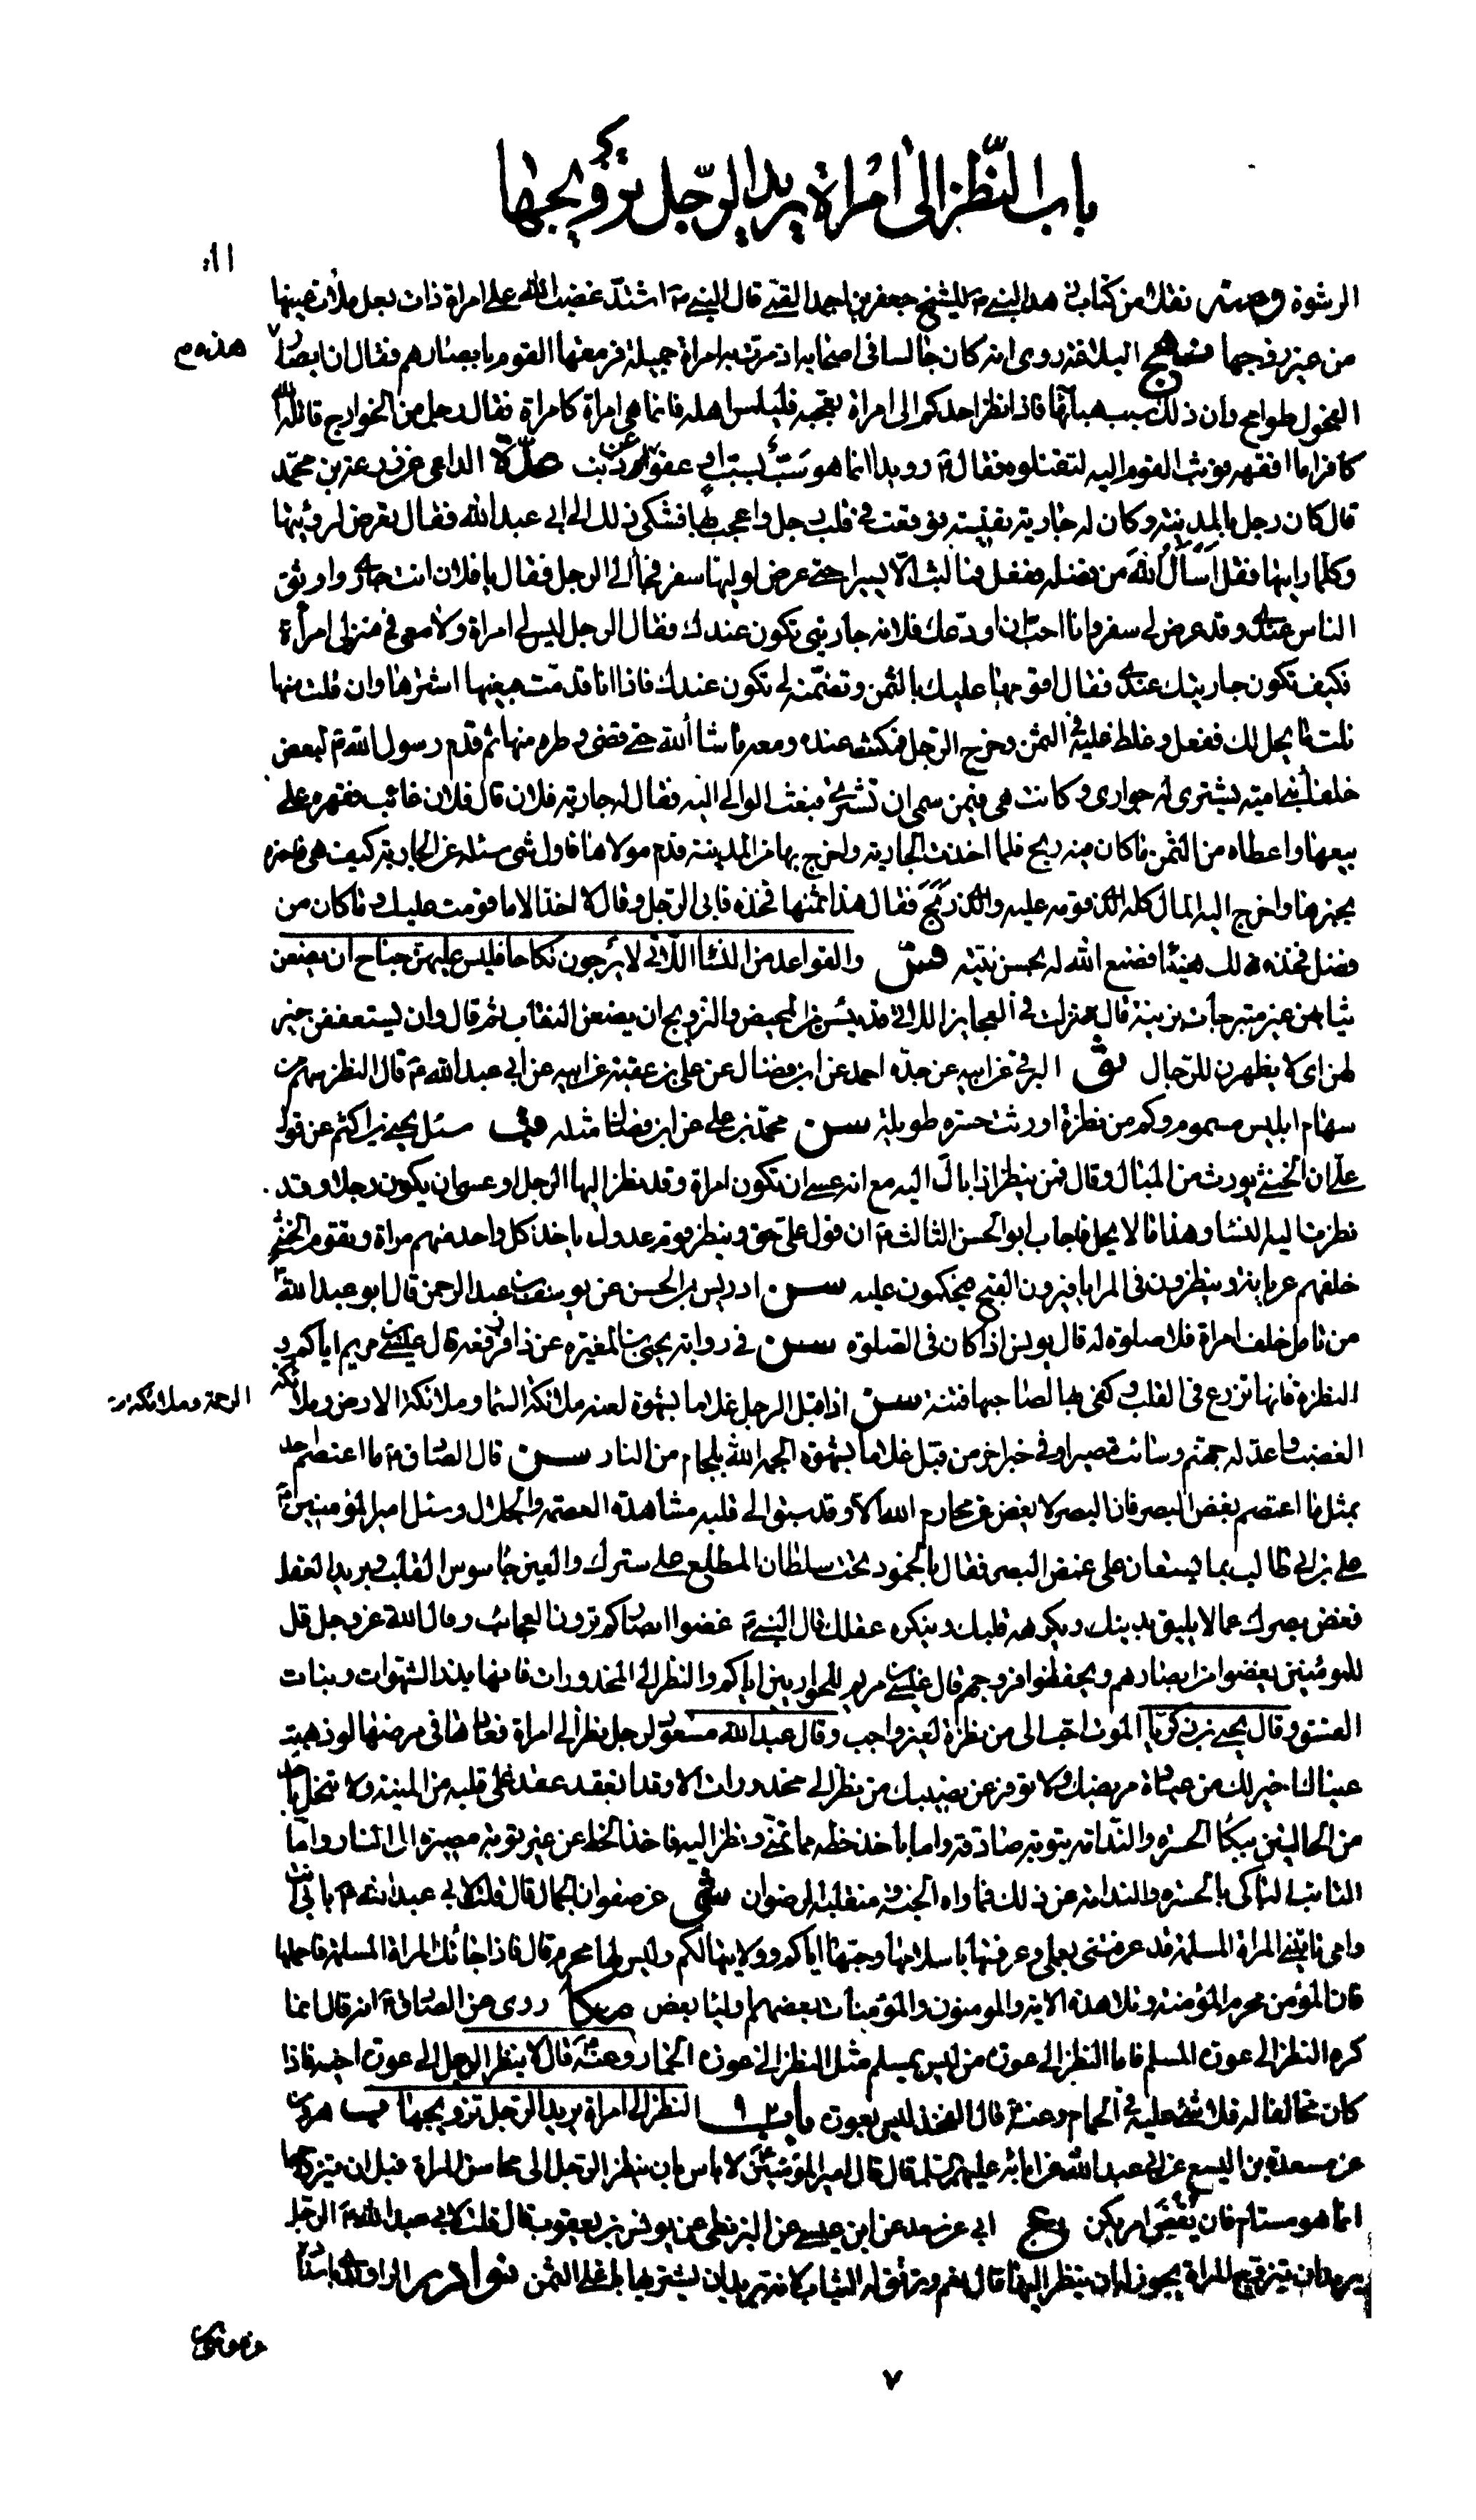 باب النّظر الى امراة يريد الرّجل تزويجها
١١
الرشوة ومنه نقلا من كتاب للشيخ جعفر بن احمد القمّي قال النبي ص اشتدّ غضب الله على امراة ذات بعل ملات عينها
من غير زوجها نهج البلاغة روى انه كان جالسا في اصحابه اذ مرّت به امراة جميلة فرمقها القوم بابصارهم فقال ان ابصار
هذه م
الفحول طوامح وان ذلك سبب هبابها فاذا نظر احدكم الى امراة تعجبه فليلمس اهله فانما هي امراة كامراة فقال رجل من الخوارج قاتله الله
كافرا ما افقهه فوثب القوم اليه ليقتلوه فقال ع رويدا انما هو سبّ بسبّ او عفو عن ذنب عدّة الداعي عن محمّد
قال كان رجل بالمدينة وكان له جارية نفيسة فوقعت في قلب رجل واعجب بها فشكى ذلك الى ابي عبد الله فقال تعرض لرؤيتها
وكلّما رايتها فقل اسأل الله من فضله ففعل فما لبث الّا يسيرا حتى عرض لوليّها سفر فجاء الى الرجل فقال يا فلان انت جاري واوثق
الناس عندي وقد عرض لي سفر وانا احبّ ان اودّعك فلانة جاريتي تكون عندك فقال الرجل ليس لي امراة ولا معي في منزلي امرأة
فكيف تكون جاريتك عندي فقال اقومها عليك بالثمن وتضمّنه لي تكون عندك فاذا انا قدمت فبعنيها اشترها وان نلت منها
نلت ما يحل لك ففعل وغلظ عليه في الثمن وخرج الرّجل فمكثت عنده ومعه ما شاء الله حتى قضى وطره منها ثم قدم رسول لبعض
خلفاء بني امية يشترى له جواري وكانت هي فيمن سمى ان تشترى فبعث الوالي اليه فقال له جارية فلان قال فلان غائب فقهره على
بيعها واعطاه من الثمن ما كان فيه ربح فلما اخذت الجارية واخرج بها من المدينة قدم مولاها فاول شيء سئله عن الجارية كيف هي فاخبره
بخبرها واخرج اليه المال كله الذي قومه عليه والذي ربح فقال هذا ثمنها فخذه فابى الرّجل وقال لا اخذ الا ما قومت عليك وما كان من
فضل فخذه لك هنيئا فصنع الله له بحسن نيّته فس والقواعد من النساء اللاتي لا يرجون نكاحا فليس عليهنّ جناح ان يضعن
ثيابهن غير متبرجات بزينة قال نزلت في العجايز اللاتي قد يئسن من المحيض والتزويج ان يضعن النقاب ثم قال وان يستعففن خير
لهن اي لا يظهرن للرّجال ثو البرقي عن ابيه عن جدّه احمد عن ابن فضال عن علي بن عقبة عن ابيه عن ابي عبد الله ع قال النظر سهم من
سهام ابليس مسموم وكم من نظرة اورثت حسرة طويلة سن محمّد بن علي عن ابن فضال مثله قب سئل يحيى بن اكثم عن قول
علي ان الخنثى يورث من المبال وقال فمن ينظر اذا بال اليه مع انه عسى ان تكون امراة وقد نظر اليها الرجل او عسى ان يكون رجلا وقد
نظرت اليه النساء وهذا ما لا يحل فاجاب ابو الحسن الثالث ع ان قول علي حق وينظر قوم عدول ياخذ كل واحد منهم مراة ويقوم الخنثى
خلفهم عريانة وينظرون في المرايا فيرون الشبح فيحكمون عليه سن ادريس بن الحسن عن يوسف بن عبد الرحمن قال ابو عبد الله ع
من تامل خلف امراة فلا صلوة له قال يونس اذا كان في الصلوة سن في رواية يحيى بن المغيرة عن ذافر رفعه قال عيسى بن مريم اياكم و
النظرة فانها تزرع في القلب وكفى بها لصاحبها فتنة سن اذا قبّل الرجل غلاما بشهوة لعنه ملائكة السماء وملائكة الارض وملائكة
الرحمة وملائكة
الغضب واعدّ له جهنم وسائت مصيرا وفي خبر اخر من قبل غلاما بشهوة الجمه الله بلجام من النار سن قال الصادق ع ما اعتصم احد
بمثل ما اعتصم بغض البصر فان البصر لا يغض عن محارم الله الا وقد سبق الى قلبه مشاهدة العظمة والجلال وسئل امير المؤمنين ع
علي بن ابي طالب بما يستعان على غض البصر فقال بالخمود تحت سلطان المطلع على سترك والعين جاسوس القلب وبريد العقل
فغض بصرك عما لا يليق بدينك ويكرهه قلبك وينكره عقلك قال النبي ص غضوا ابصاركم ترون العجائب وقال الله عز وجل قل
للمومنين يغضوا من ابصارهم ويحفظوا فروجهم قال عيسى بن مريم للحواريين اياكم والنظر الى المحذورات فانها بذر الشهوات ونبات
الفسق وقال يحيى بن زكريا الموت احب الى من نظرة لغير واجب وقال عبد الله بن مسعود لرجل نظر الى امراة قد عادها في مرضها لو ذهبت
عيناك لكان خيرا لك من عيادة مريضك ولا توفر عين نصيبك من نظر الى محذورات الا وقد انعقد عقدة على قلبه من المنية ولا تنحل الا
من الحالتين ببكاء الحسرة والندامة بتوبة صادقة واما ياخذ حظه مما تمنى ونظر اليه فاخذ الحظ من غير توبة مصيره الى النار واما
التائب الباكي بالحسرة والندامة عن ذلك فماواه الجنة ومنقلبه الرضوان شى عن صفوان الجمال قال قلت لابي عبد الله ع بابي انت
وامي تاتيني المراة المسلمة قد عرفتني بعملي وعرفتها باسلامها وحبها اياكم وولايتها لكم وليس لها محرم قال فاذا جائتك المراة المسلمة فاحملها
فان المؤمن محرم المؤمنة وتلا هذه الاية والمومنون والمؤمنات بعضهم اولياء بعض مكا روى عن الصادق ع انه قال انما
كره النظر الى عورة المسلم فاما النظر الى عورة من ليس بمسلم مثل النظر الى عورة الحمار وعنه ع قال لا ينظر الرجل الى عورة اخيه فاذا
كان مخالفا له فلا شيء عليه في الحمام وعنه ع قال الفخذ ليس بعورة باب النظر الى امراة يريد الرجل تزويجها ب هرون
عن مسعدة بن اليسع عن ابي عبد الله عن ابائه عليهم السلم قال قال امير المؤمنين ع لا باس بان ينظر الرجل الى محاسن المراة قبل ان يتزوجها
انما هو مستام فان يقض امر يكن ع ابي عن سعد عن ابن عيسى عن البزنطي عن يونس بن يعقوب قال قلت لابي عبد الله ع الرجل
يريد ان يتزوج المراة يجوز له ان ينظر اليها قال نعم وترقق له الثياب لانه يريد ان يشتريها باغلى الثمن نوادر الراوندي باسناده
٧